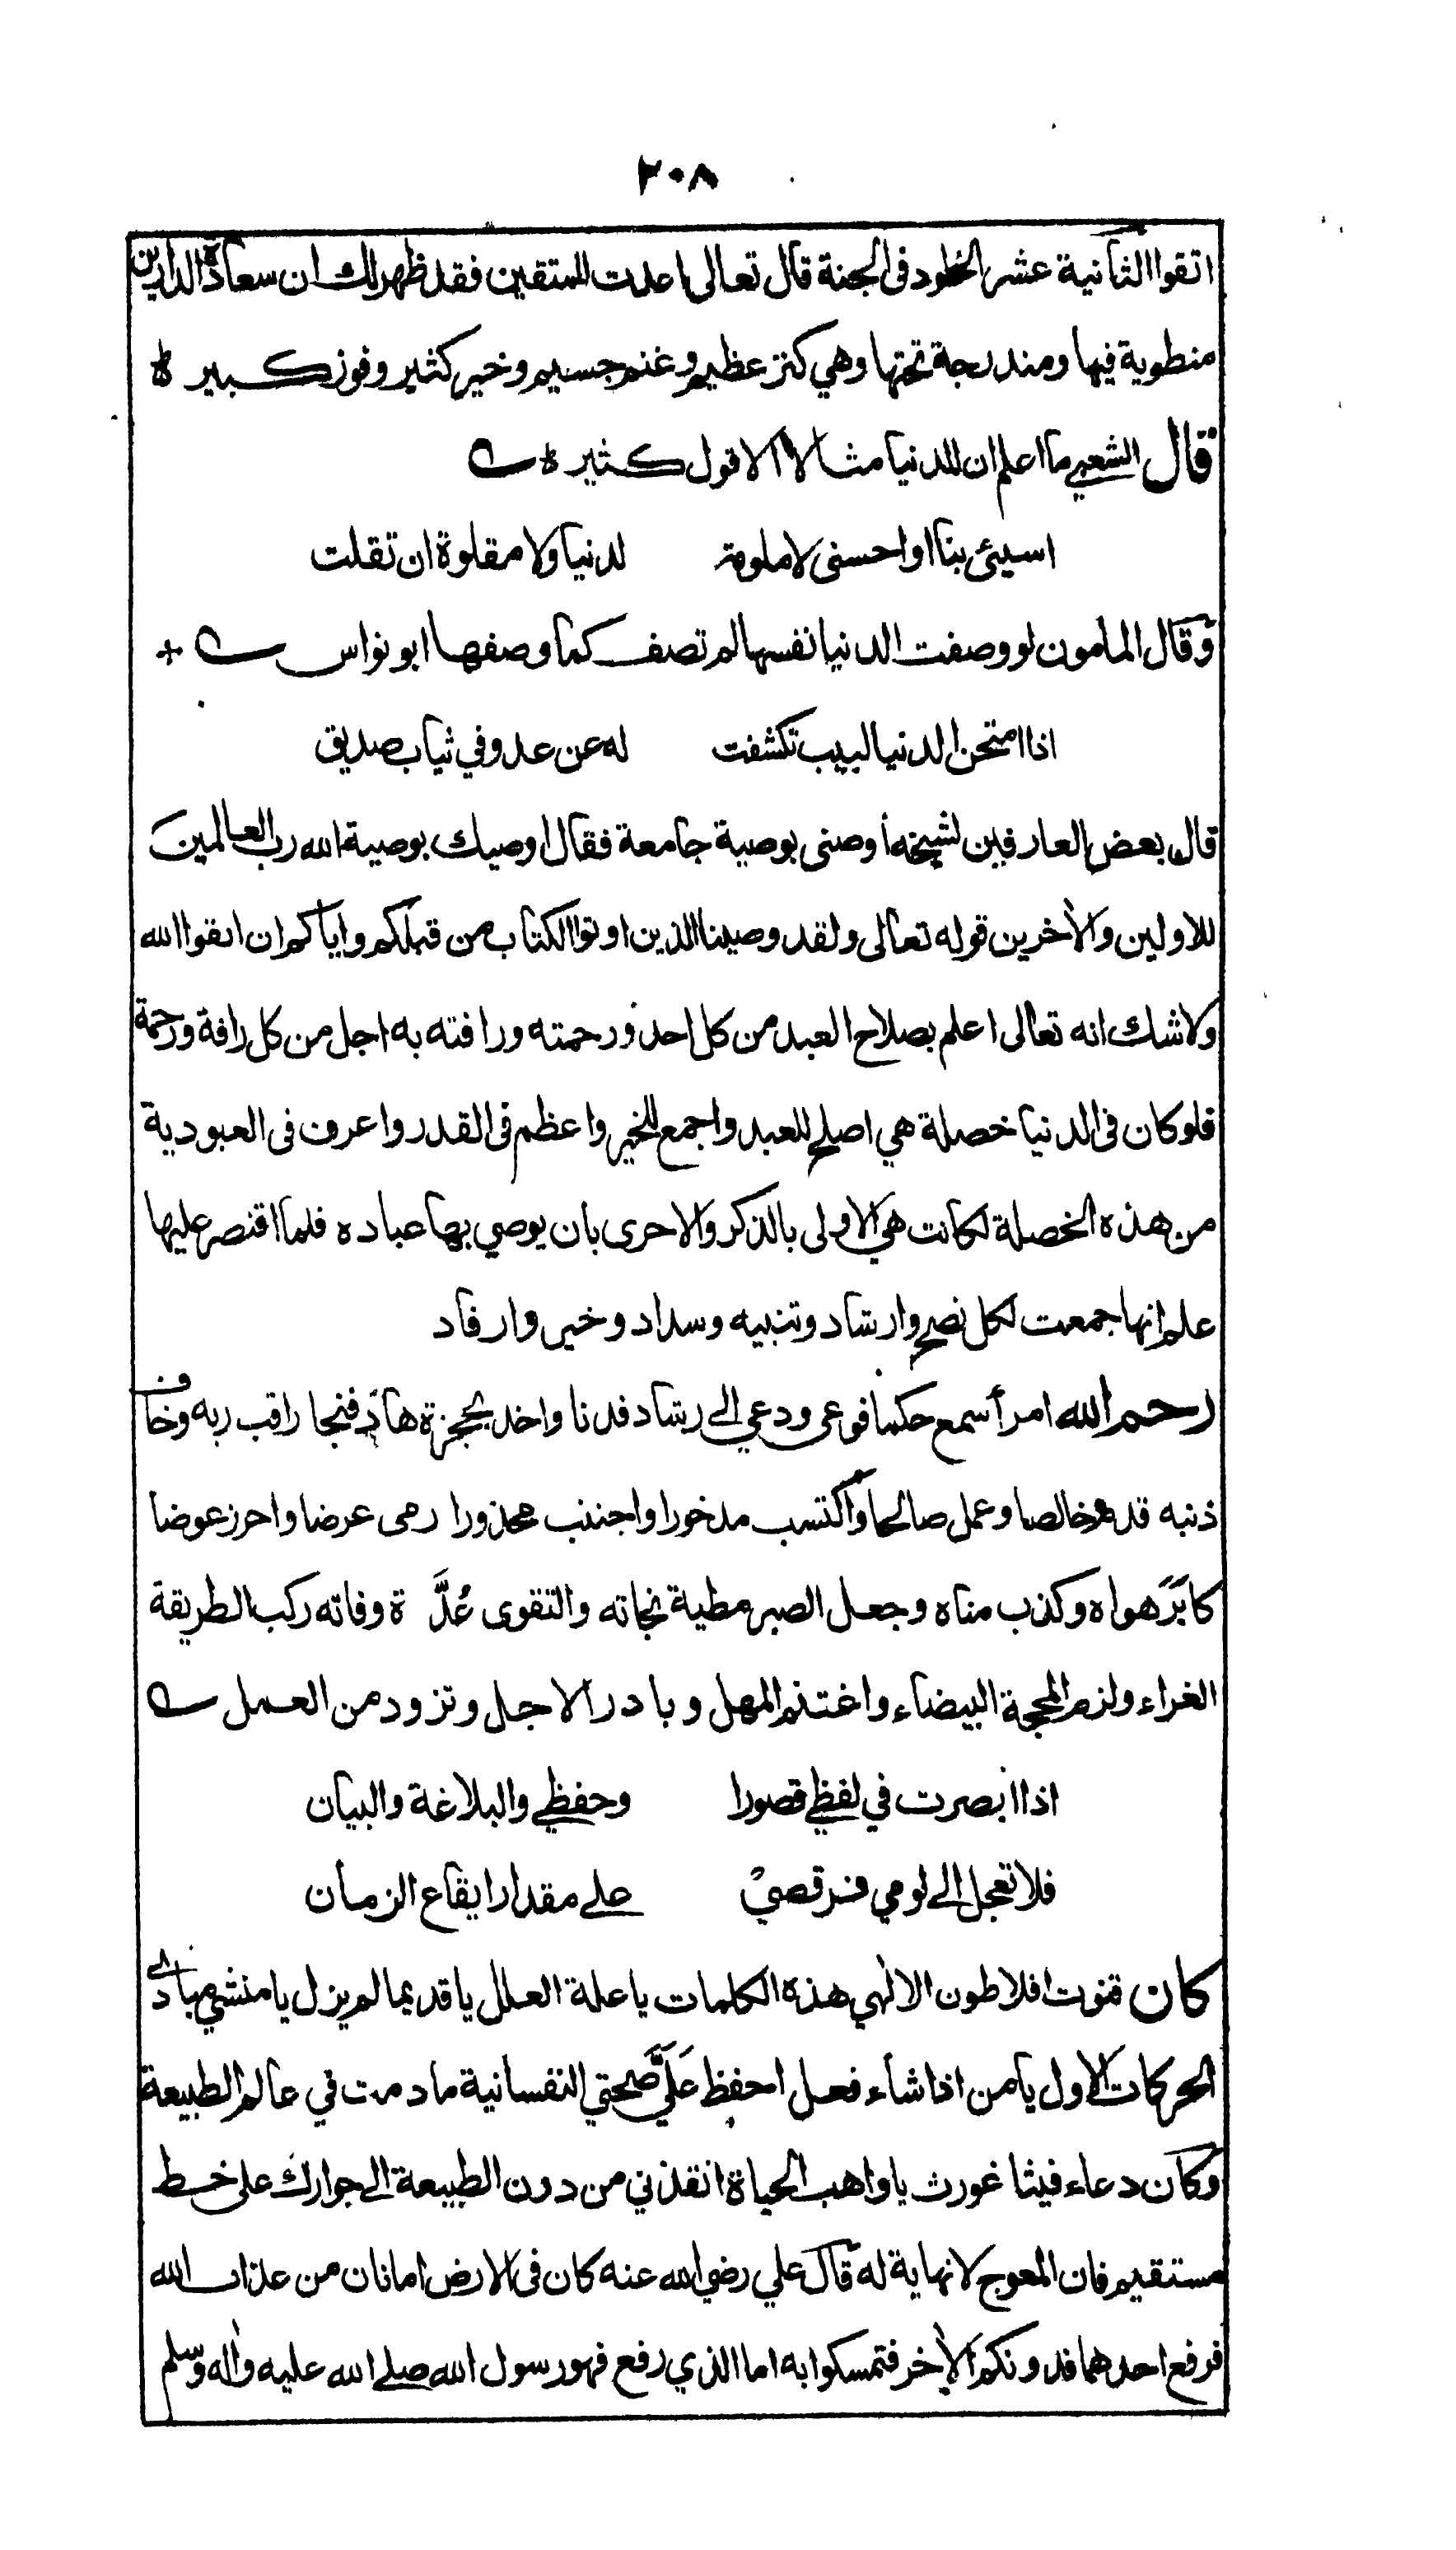 ٢٠٨
اتقوا الثانية عشر الخلود فى الجنة قال تعالى اعدت للمتقين فقد ظهر لك ان سعادة الدارين
منطوية فيها ومندرجة تحتها وهي كنز عظيم وغنم جسيم وخير كثير وفوز كبير
قال الشعبي ما اعلم ان للدنيا مثالا الا قول كثير
اسيئى بنا او احسنى لا ملومة لدنيا ولا مقلوة ان تقلت
وقال المامون لو وصفت الدنيا نفسها لم تصف كما وصفها ابو نواس
اذا امتحن الدنيا لبيب تكشفت له عن عدو في ثياب صديق
قال بعض العارفين لشيخه أوصنى بوصية جامعة فقال اوصيك بوصية الله رب العالمين
للاولين والأخرين قوله تعالى ولقد وصينا الذين اوتوا الكتاب من قبلكم واياكم ان اتقوا الله
ولا شك انه تعالى اعلم بصلاح العبد من كل احد ورحمته ورافته به اجل من كل رافة ورحمة
فلو كان فى الدنيا خصلة هي اصلح للعبد واجمع للخير واعظم فى القدر واعرف فى العبودية
من هذه الخصلة لكانت هي الاولى بالذكر والاحرى بان يوصي بها عباده فلما اقتصر عليها
علم انها جمعت لكل نصح وارشاد وتنبيه وسداد وخير وارفاد
رحم الله امرأ سمع حكما فوعى ودعي الے رشاد فدنا واخذ بحجزة هاد فنجا راقب ربه وخاف
ذنبه قدم خالصا وعمل صالحا واكتسب مدخورا واجتنب محذورا رمى عرضا واحرز عوضا
كابَرَ هواه وكذب مناه وجعل الصبر مطية نجاته والتقوى عُدَّة وفاته ركب الطريقة
الغراء ولزم المحجة البيضاء واغتنم المهل وبادر الاجل وتزود من العمل
اذا ابصرت في لفظے قصورا وحفظے والبلاغة والبيان
فلا تعجل الے لومي فرقصيْ علے مقدار ايقاع الزمان
كان قنوت افلاطون الالٰهي هذه الكلمات يا علة العلل يا قديما لم يزل يا منشي مبادے
الحركات الاول يا من اذا شاء فعل احفظ عَلَيَّ صحتي النفسانية ما دمت في عالم الطبيعة
وكان دعاء فيثاغورث يا واهب الحياة انقذني من درن الطبيعة الے جوارك على خط
مستقيم فان المعوج لا نهاية له قال علي رضي الله عنه كان فى الارض امانان من عذاب الله
فرفع احدهما فدونكم الأخر فتمسكوا به اما الذي رفع فهو رسول الله صلے الله عليه واٰله وسلم